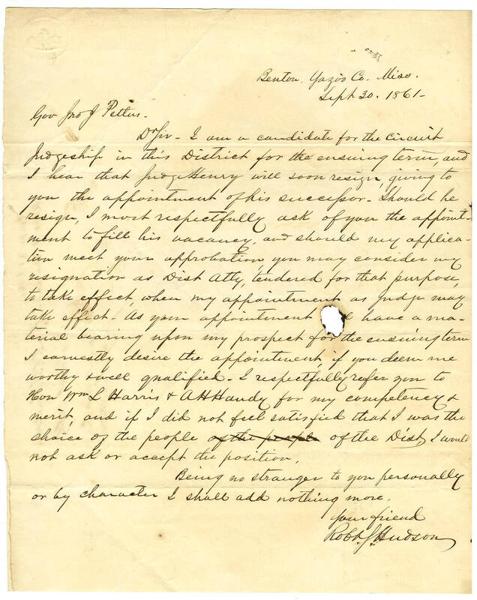 Benton Yazoo Co. Miss.
Sept 30. 1861-
Gov Jno J Pettus.
Dr Sir - I am a candidate for the Circuit
Judgeship in this District for the ensuing term, and
I hear that Judge Henry will soon resign, giving to
you the appointment of his successor - Should he
resign, I most respectfully ask of you the appoint-
ment to fill his vacancy, and should my applica-
tion meet your approbation you may consider my
resignation as Dist Atty, tendered for that purpose,
to take effect, when my appointment as Judge may
take effect - As your appointment have a ma-
terial bearing upon my prospect for the ensuing term
I earnestly desire the appointment if you deem me
worthy & well qualified - I respectfully refer you to
Hon Wm L Harris & A H Handy for my competency &
merit, and if I did not feel satisfied that I was the
choice of the people of the people of the Dist, I would
not ask or accept the position.
Being no stranger to you personally
or by character I shall add nothing more.
Your friend
Robt. S. Hudson